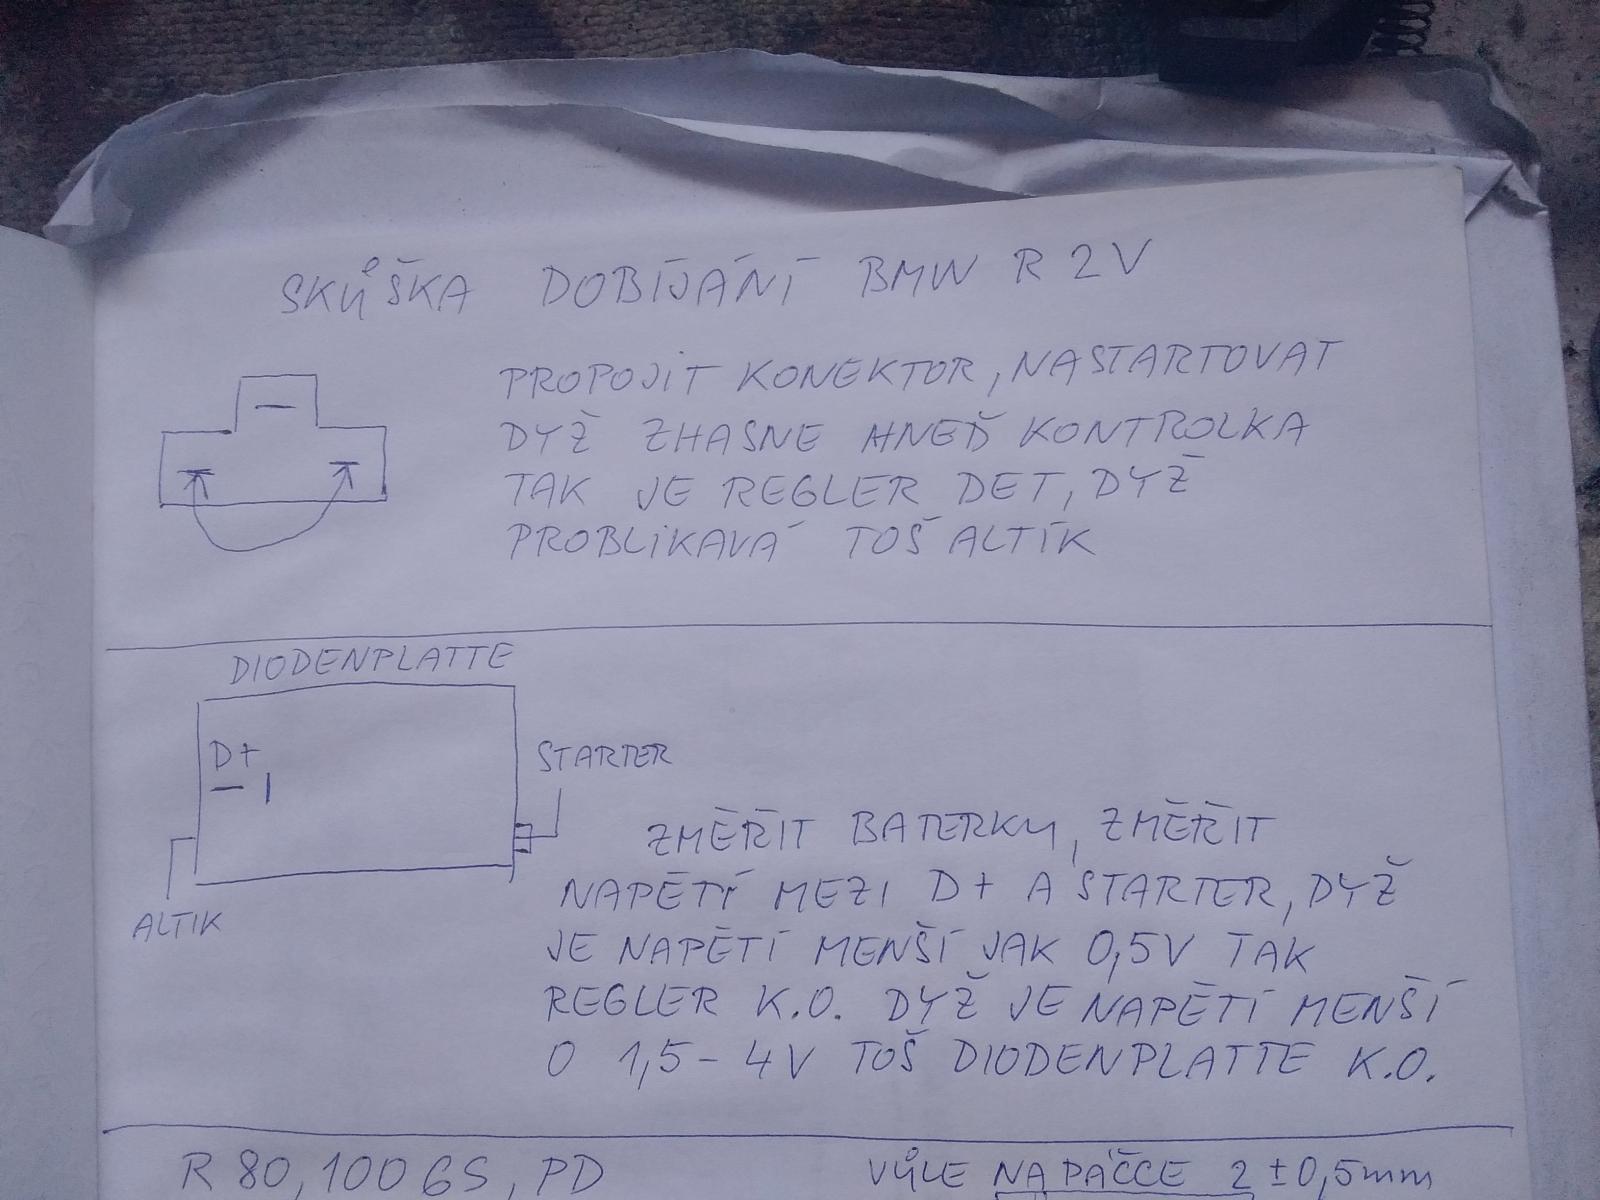 SKŮŠKA DOBÍJÁNÍ BMW R 2V
PROPOJIT KONEKTOR, NASTARTOVAT
DYŽ ZHASNE HNEĎ KONTROLKA
TAK JE REGLER DET, DYŽ
PROBLIKAVÁ TOŠ ALTÍK
DIODENPLATTE
D+
STARTER
ALTIK
ZMĚŘIT BATERKU, ZMĚŘIT
NAPĚTÍ MEZI D+ A STARTER, DYŽ
JE NAPĚTÍ MENŠÍ JAK 0,5V TAK
REGLER K.O. DYŽ JE NAPĚTÍ MENŠÍ
O 1,5 - 4V TOŠ DIODENPLATTE K.O.
R 80, 100 GS, PD
VŮLE NA PÁČCE 2 ± 0,5mm